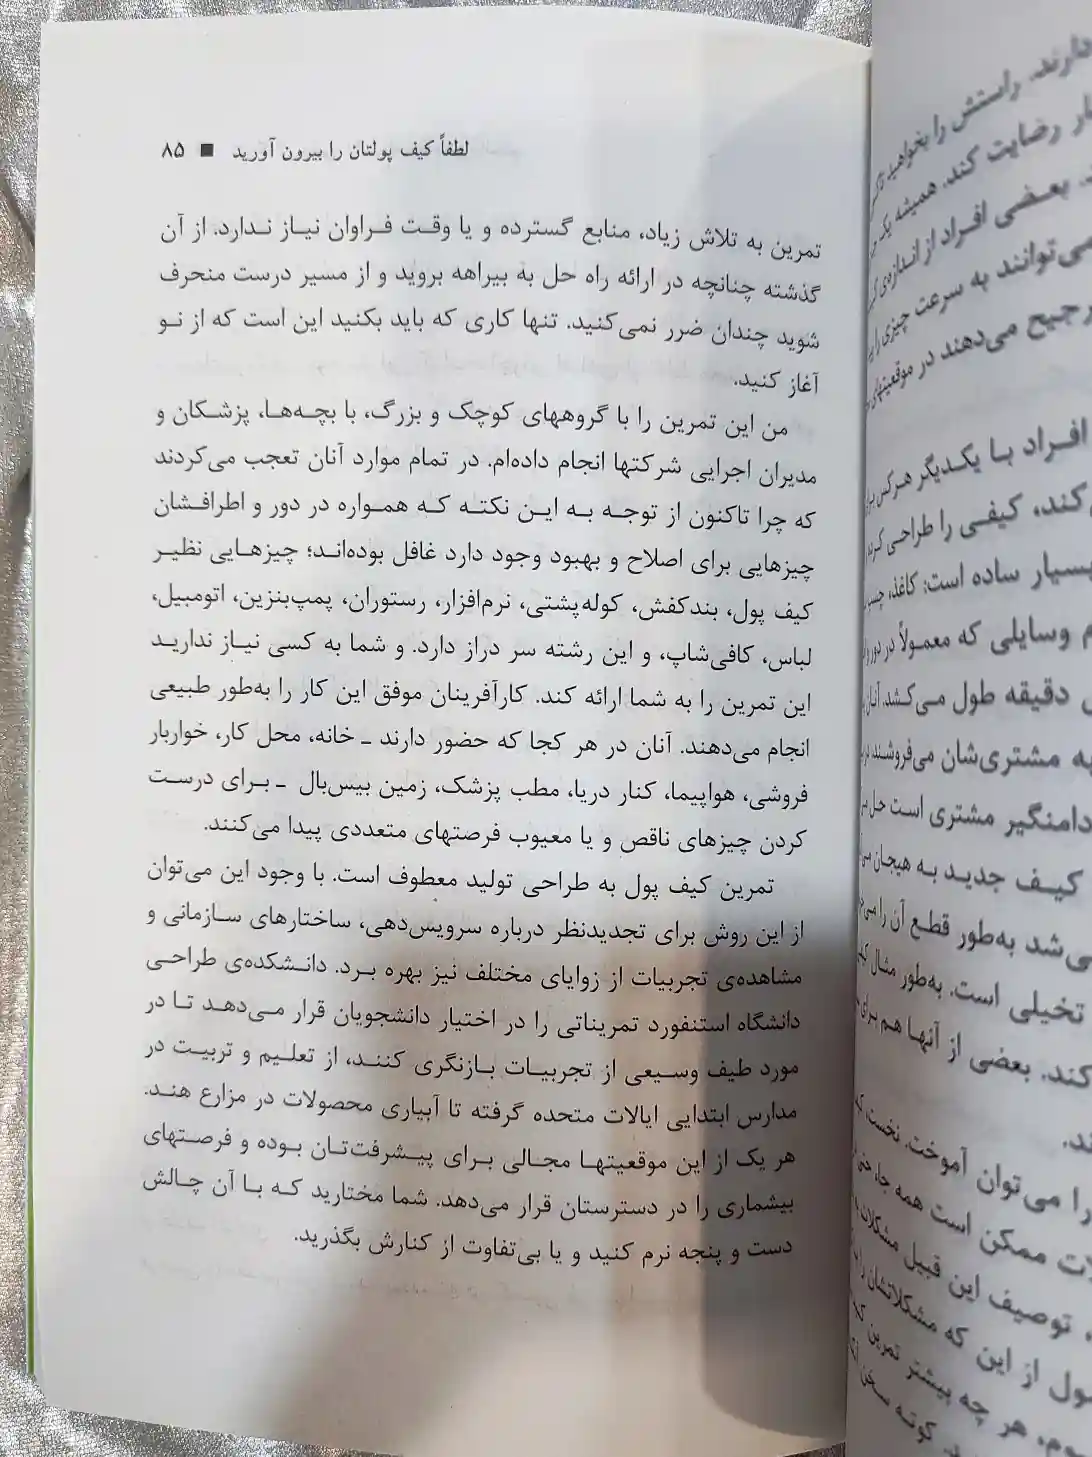 لطفاً کیف پولتان را بیرون آورید ■ ۸۵
تمرین به تلاش زیاد، منابع گسترده و یا وقت فراوان نیاز ندارد. از آن
گذشته چنانچه در ارائه راه حل به بیراهه بروید و از مسیر درست منحرف
شوید چندان ضرر نمی‌کنید. تنها کاری که باید بکنید این است که از نو
آغاز کنید.
من این تمرین را با گروههای کوچک و بزرگ، با بچه‌ها، پزشکان و
مدیران اجرایی شرکتها انجام داده‌ام. در تمام موارد آنان تعجب می‌کردند
که چرا تاکنون از توجه به این نکته که همواره در دور و اطرافشان
چیزهایی برای اصلاح و بهبود وجود دارد غافل بوده‌اند؛ چیزهایی نظیر
کیف پول، بندکفش، کوله‌پشتی، نرم‌افزار، رستوران، پمپ‌بنزین، اتومبیل،
لباس، کافی‌شاپ، و این رشته سر دراز دارد. و شما به کسی نیاز ندارید
این تمرین را به شما ارائه کند. کارآفرینان موفق این کار را به‌طور طبیعی
انجام می‌دهند. آنان در هر کجا که حضور دارند ـ خانه، محل کار، خواربار
فروشی، هواپیما، کنار دریا، مطب پزشک، زمین بیس‌بال ـ برای درست
کردن چیزهای ناقص و یا معیوب فرصتهای متعددی پیدا می‌کنند.
تمرین کیف پول به طراحی تولید معطوف است. با وجود این می‌توان
از این روش برای تجدیدنظر درباره سرویس‌دهی، ساختارهای سازمانی و
مشاهده‌ی تجربیات از زوایای مختلف نیز بهره برد. دانشکده‌ی طراحی
دانشگاه استنفورد تمریناتی را در اختیار دانشجویان قرار می‌دهد تا در
مورد طیف وسیعی از تجربیات بازنگری کنند، از تعلیم و تربیت در
مدارس ابتدایی ایالات متحده گرفته تا آبیاری محصولات در مزارع هند.
هر یک از این موقعیتها مجالی برای پیشرفت‌تان بوده و فرصتهای
بیشماری را در دسترستان قرار می‌دهد. شما مختارید که با آن چالش
دست و پنجه نرم کنید و یا بی‌تفاوت از کنارش بگذرید.
دارند. راستش را بخواهید
رضایت کند. همیشه یک
بعضی افراد از اندازه‌ی
می‌توانند به سرعت چیزی را
ترجیح می‌دهند در موقعیتهای
افراد با یکدیگر هرکس
کند، کیفی را طراحی
بسیار ساده است: کاغذ،
وسایلی که معمولاً در دور
دقیقه طول می‌کشد. آنان
به مشتری‌شان می‌فروشند.
دامنگیر مشتری است حل
کیف جدید به هیجان
به‌طور قطع آن را
تخیلی است. به‌طور مثال
کند. بعضی از آنها هم برای
را می‌توان آموخت. نخست،
ممکن است همه جا،
توصیف این قبیل مشکلات
از این که مشکلاتشان را
هر چه بیشتر تمرین
کوته سخن